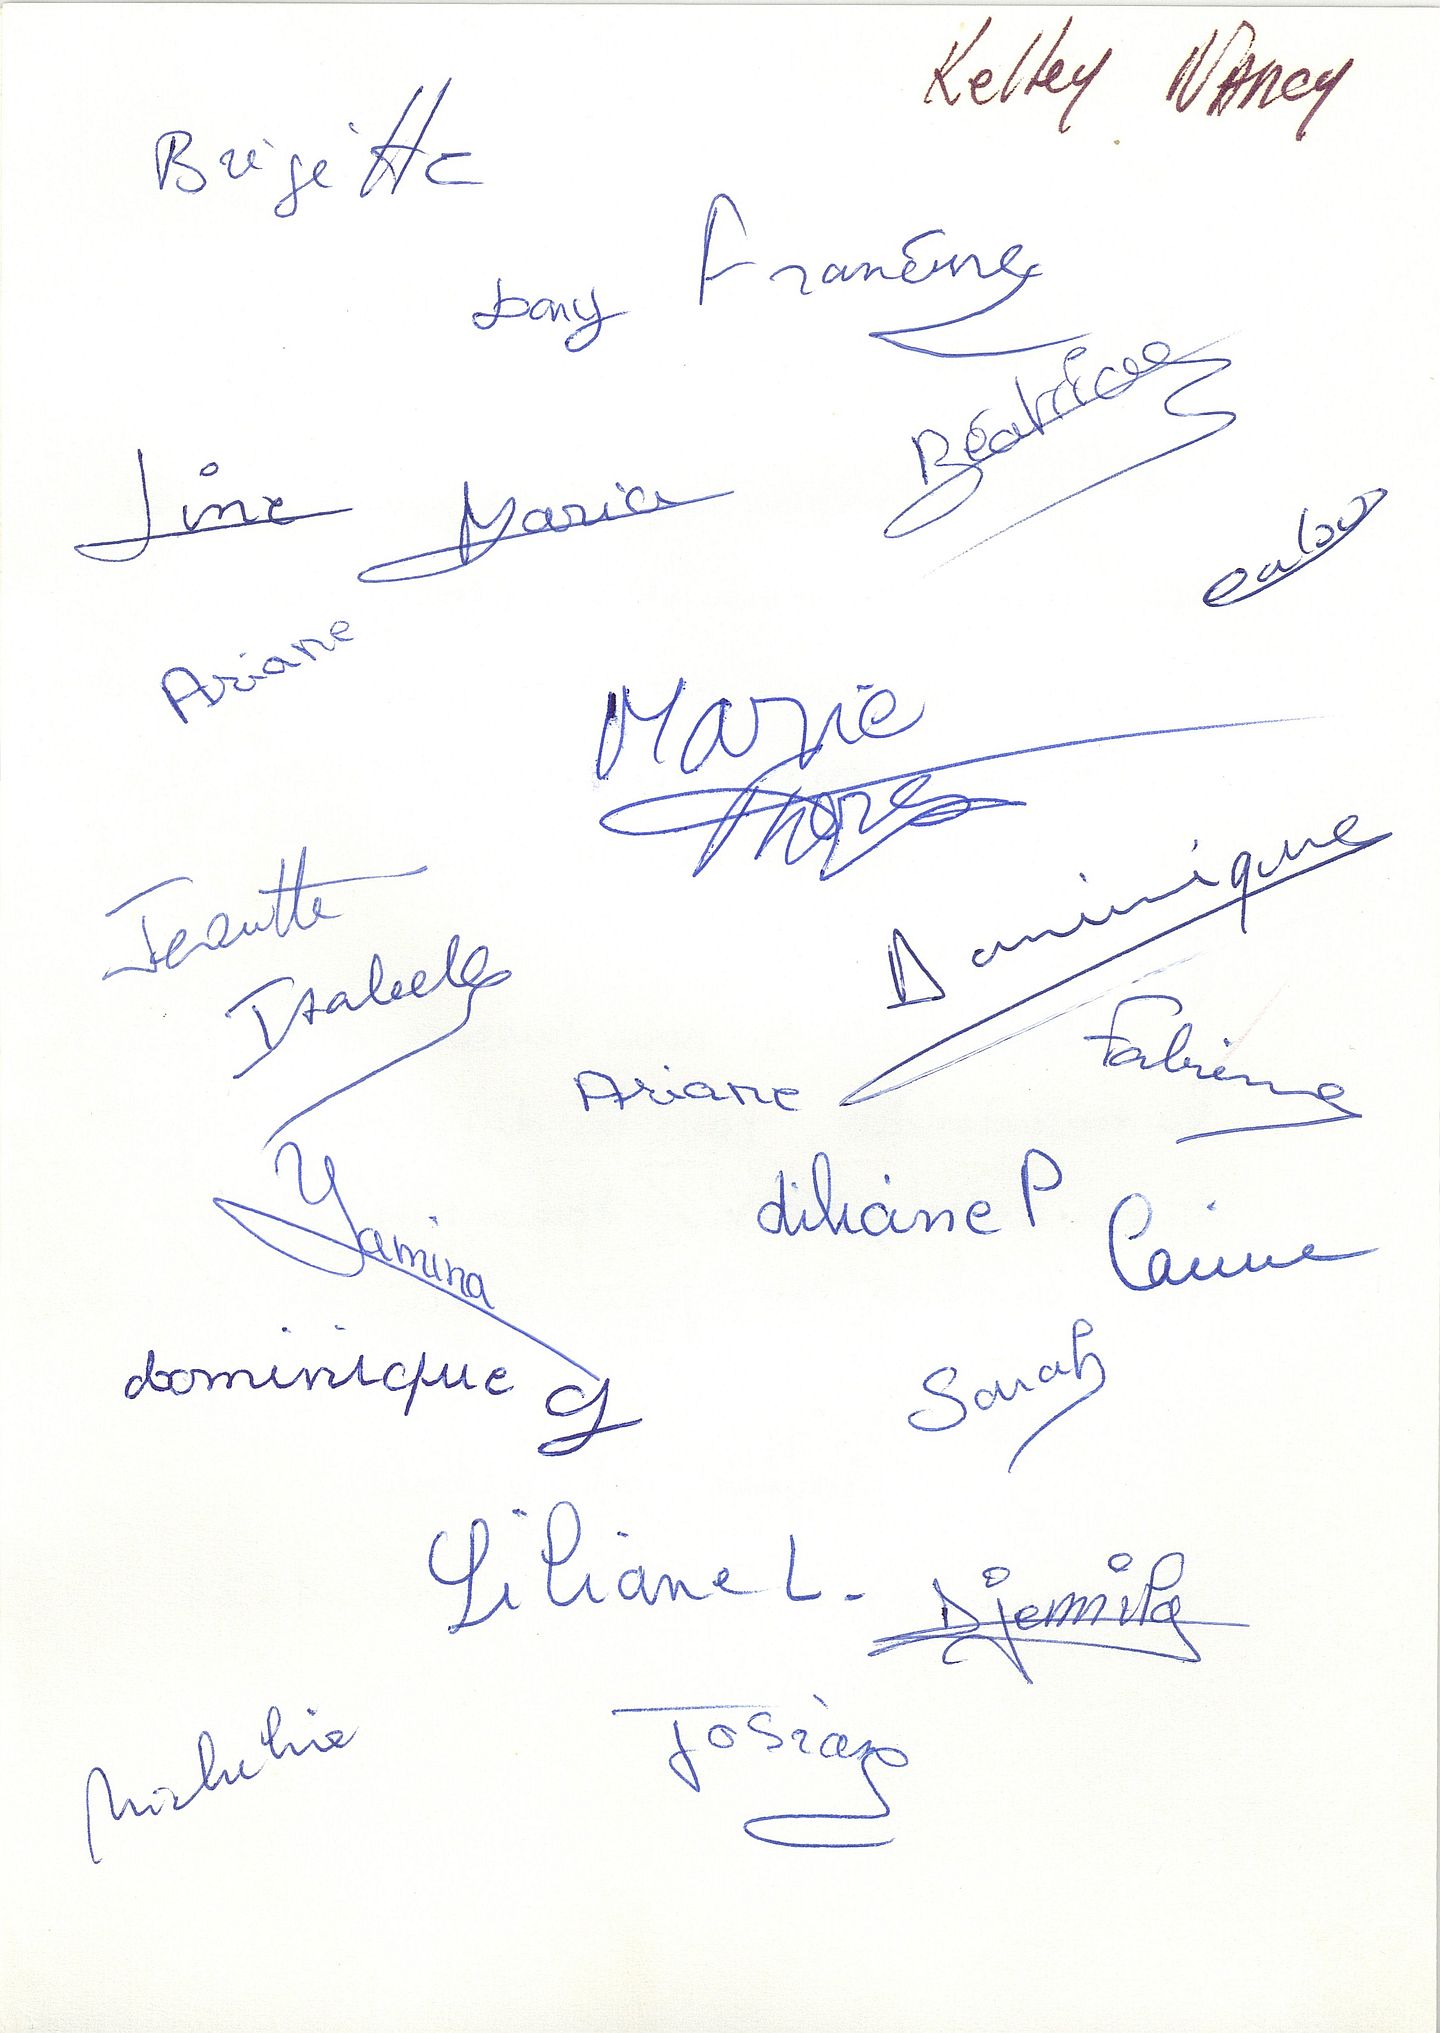 Kelley NANCY
Brigitte
Francine
Dany
Béatrice
Line
Maria
Ariane
Marie
Dominique
Isabelle
Fabienne
Ariane
Liliane P
Yamina
dominique G
Sarah
Liliane L.
Djemila
Josiane